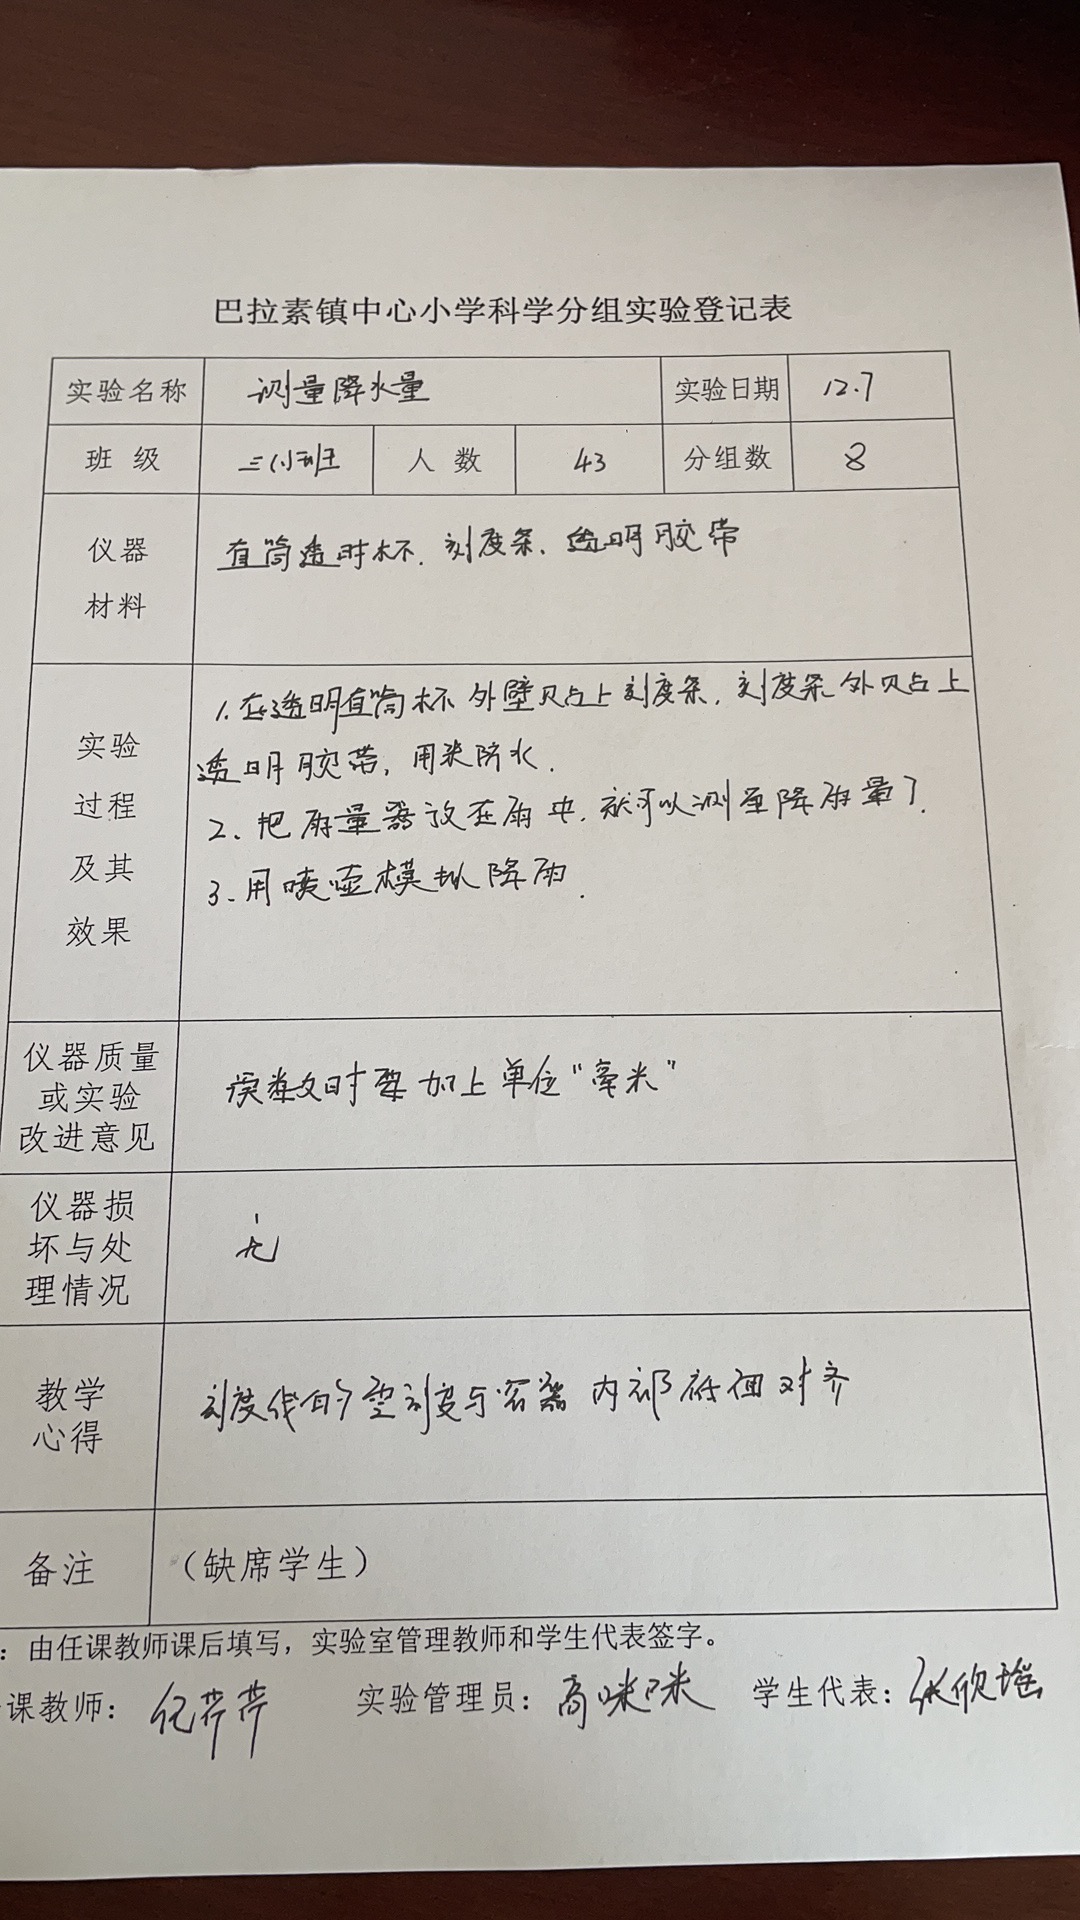 巴拉素镇中心小学科学分组实验登记表
实验名称 测量降水量 实验日期 12.7
班 级 三(1)班 人 数 43 分组数 8
仪器
材料
直筒透明杯. 刻度条、透明胶带
实验
过程
及其
效果
1. 在透明直筒杯外壁贝占上刻度条, 刻度条外贝占上
透明胶带, 用来防水.
2、把雨量器放在雨中, 就可以测量降雨量了.
3、用喷壶模拟降雨.
仪器质量
或实验
改进意见
读数时要加上单位"毫米"
仪器损
坏与处
理情况
无
教学
心得
刻度线的零刻度与容器内部底面对齐
备注
(缺席学生)
:由任课教师课后填写,实验室管理教师和学生代表签字。
课教师: 纪芹芹 实验管理员: 高咪咪 学生代表: 张欣瑶